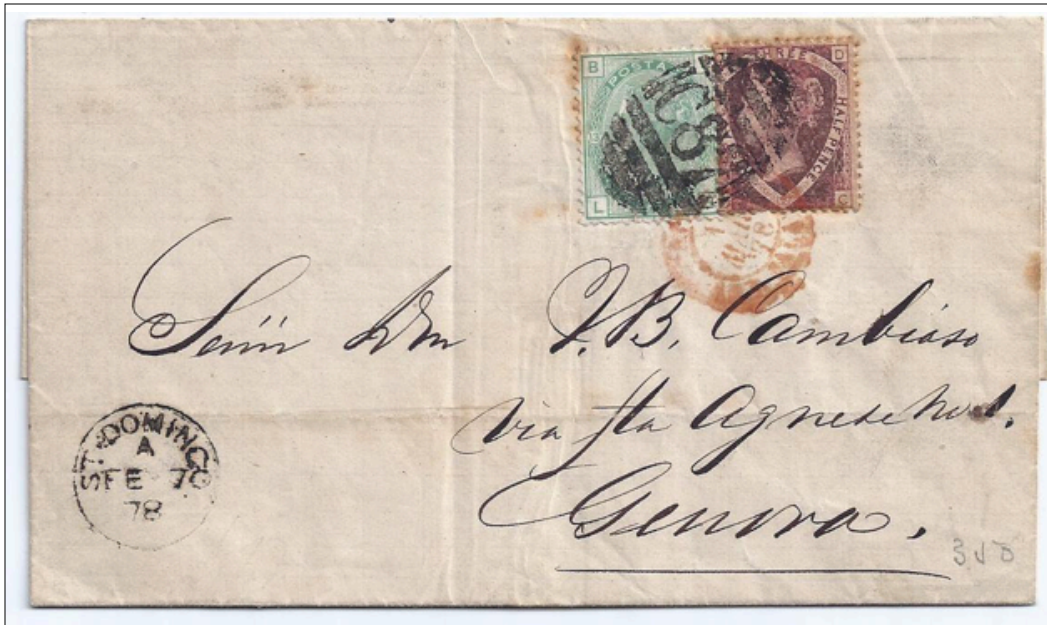 B
POSTA
L
THREE
D
HALF PENCE
C
C87
Señr Dn J.B. Cambiaso
via Sta Agnese No 1.
Genova.
ST. DOMINGO
A
FE 7
78